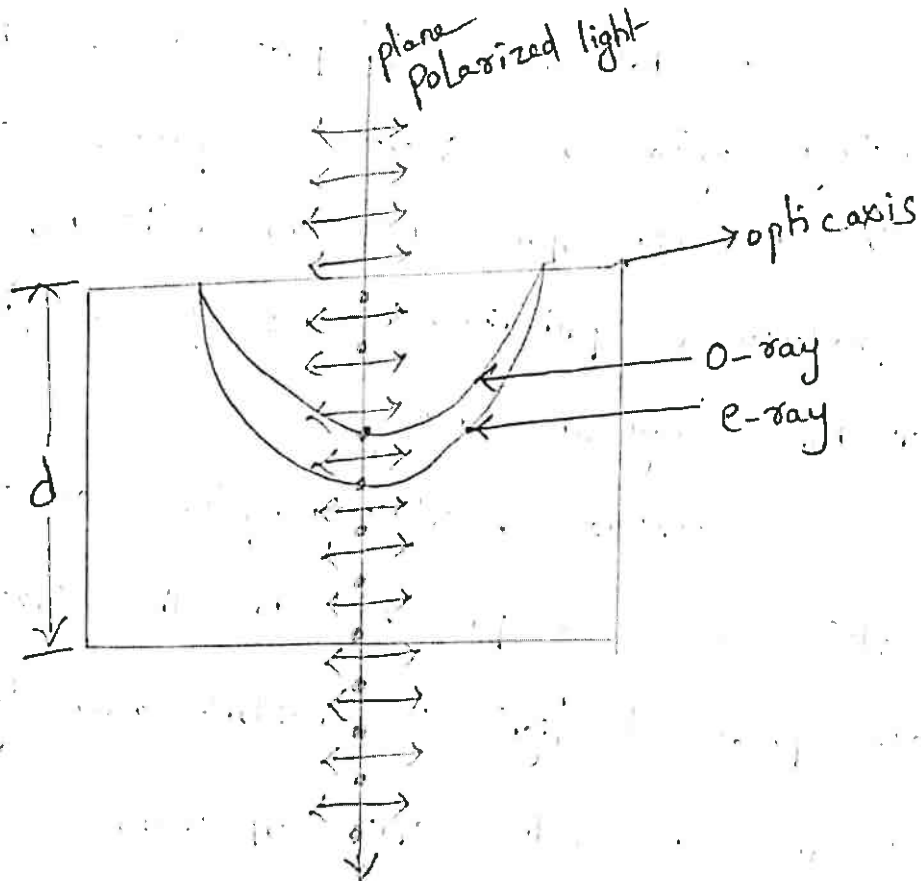 plane
polarized light
optic axis
O-ray
e-ray
d